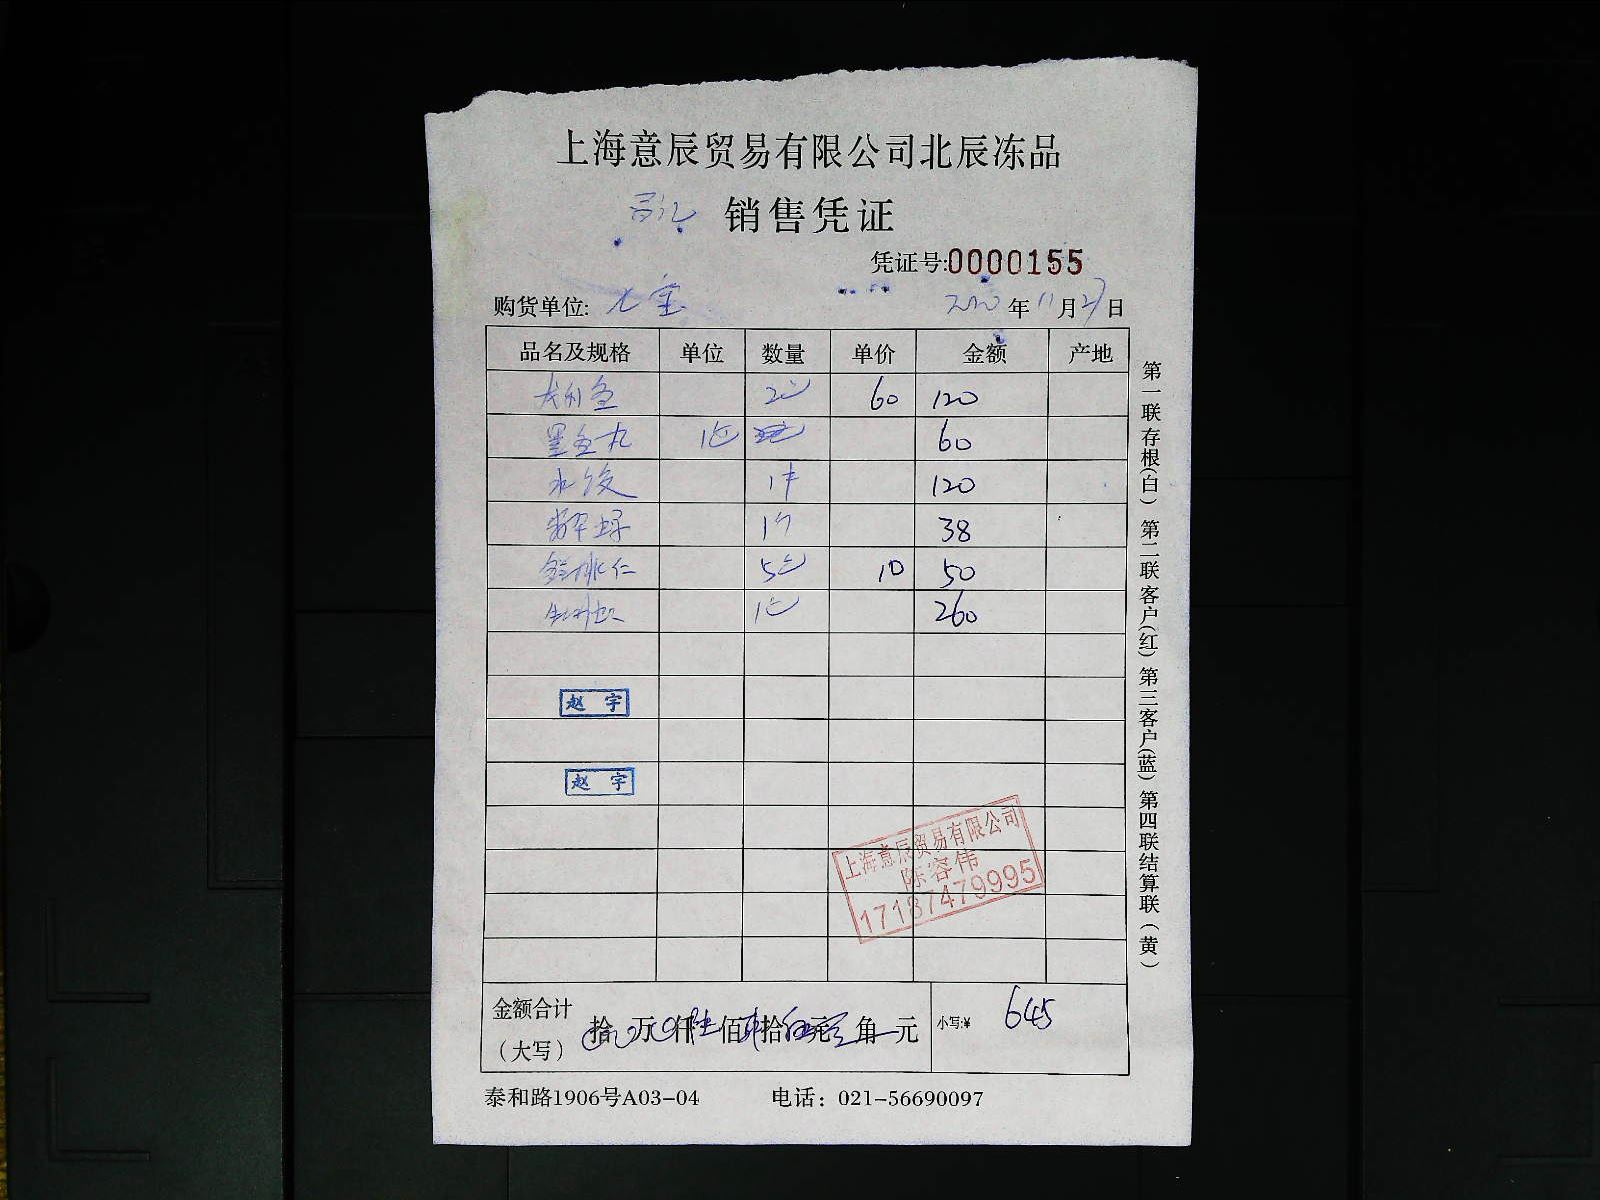 上海意辰贸易有限公司北辰冻品
销售凭证
凭证号:0000155
购货单位: 七宝 2020年11月27日
品名及规格 单位 数量 单价 金额 产地
龙利鱼 2包 60 120
墨鱼丸 1包 60
水饺 1件 120
1个 38
核桃仁 5包 10 50
1包 260
赵宇
赵宇
上海意辰贸易有限公司
陈容伟
17187479995
金额合计
(大写) 拾 万 仟 陆 佰 拾 伍 元 角 元 小写:¥ 645
泰和路1906号A03-04 电话：021-56690097
第一联存根(白) 第二联客户(红) 第三客户(蓝) 第四联结算联(黄)